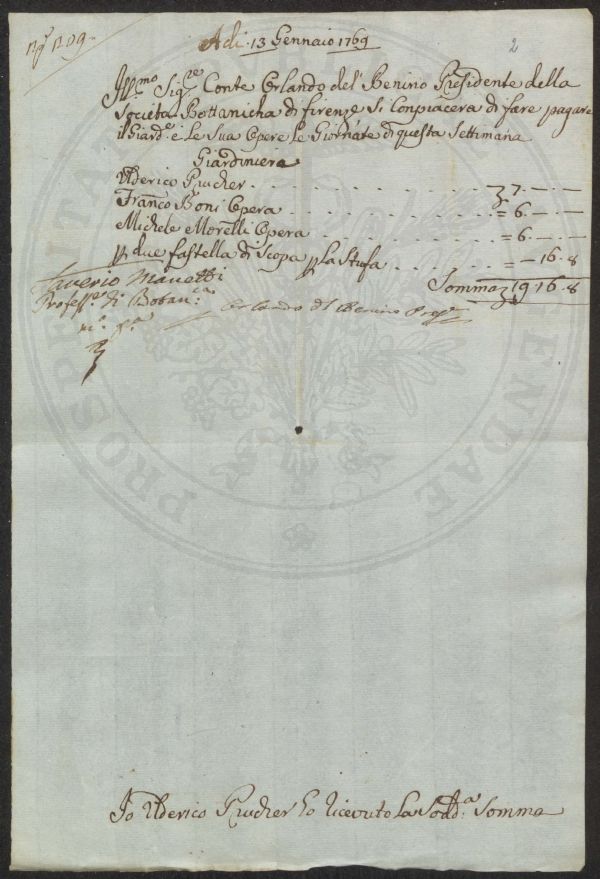 Adi. 13 Gennaio 1769
2
Illmo Sigre Conte Orlando del' Benino Presidente della
Societa Bottanicha di firenze Si Conpiacera di fare pagare
il Giarde e Le Sua Opere Le Giornate di questa Settimana
Giardiniera
Ulderico Prucher . . . . . . . . 7. — . —
Franco Boni Opera . . . . . . . = 6. — . —
Michele Morelli Opera . . . . . . = 6. — . —
p due fastella di Scopa p La Stufa . . . . = — 16. 8
Somma 19 16. 8
Saverio Manetti
Professre di Botanca
Orlando del Benino Preste
Io Ulderico Prucher ho ricevuto La Sodda Somma
PROSPERITATI AUGENDAE